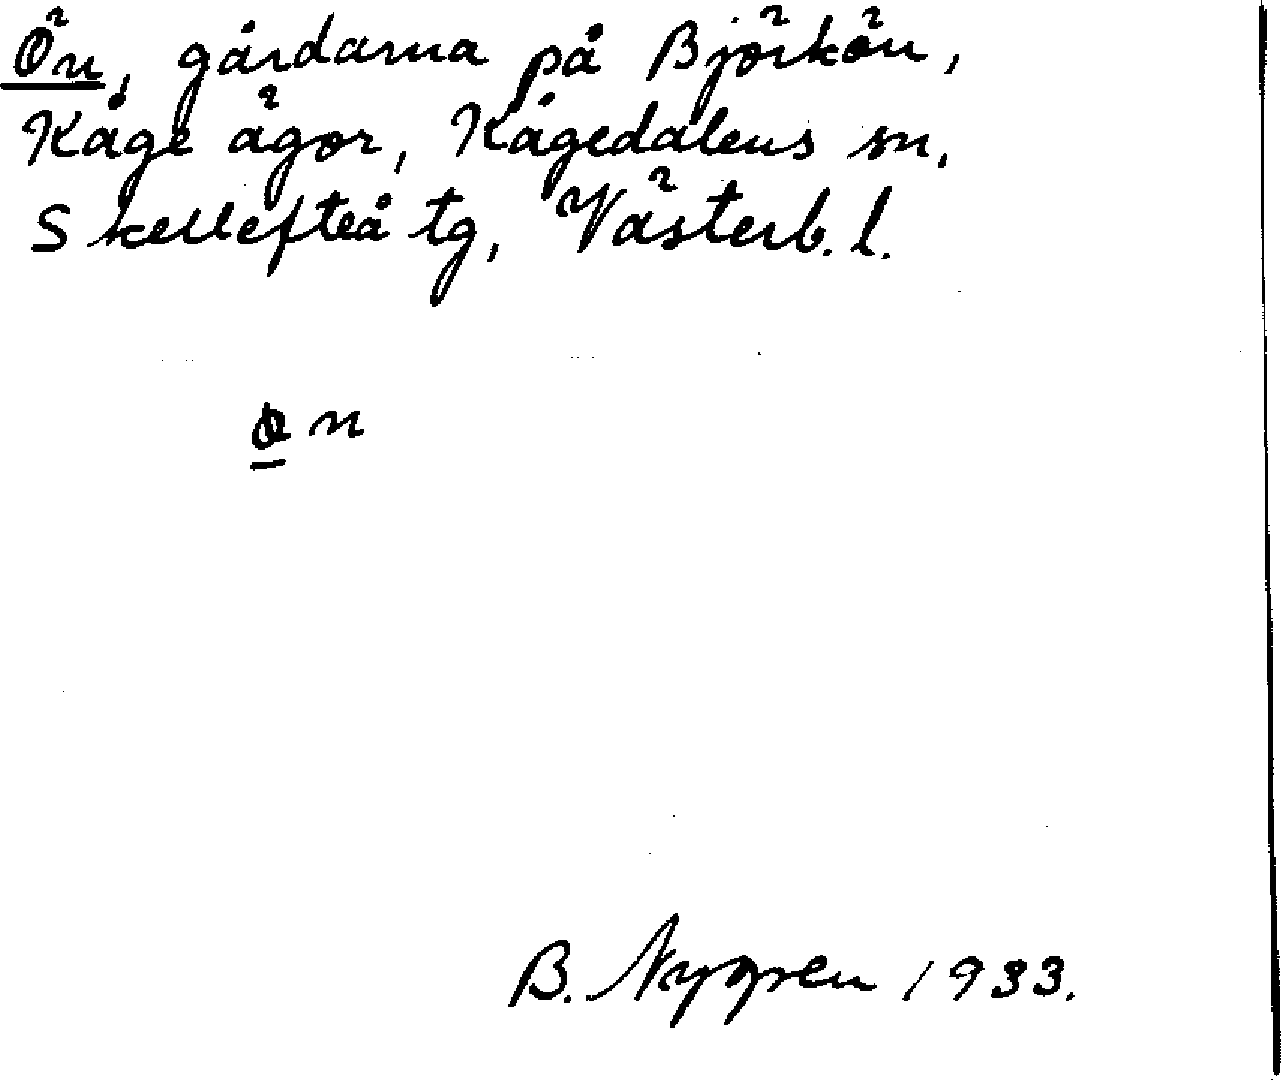 Ön, gårdarna på Björkön,
Kåge ägor, Kågedalens sn,
Skellefteå tg, Västerb. l.
ø̲n
B. Nygren 1933.